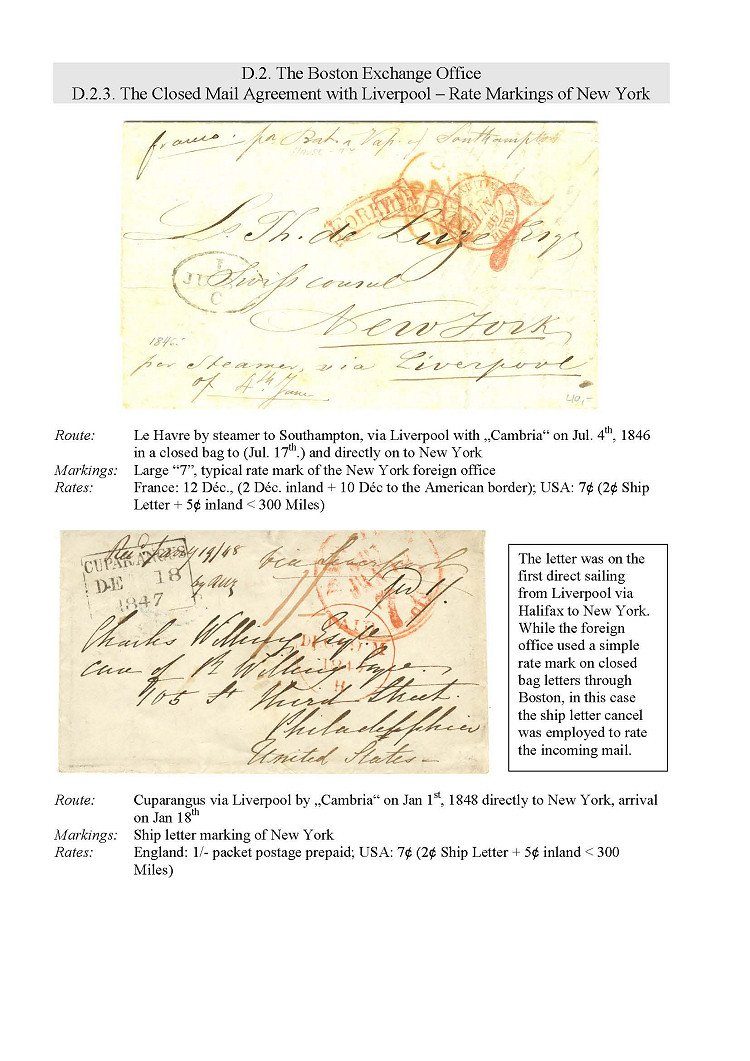 D.2. The Boston Exchange Office
D.2.3. The Closed Mail Agreement with Liverpool – Rate Markings of New York
franco. per Bat. a Vap. of Southampton
PAID
L. Th. de Luze Esqr
Swiss consul
New York
1846.-
per Steamer, via Liverpool
of 4th June
40,-
Route: Le Havre by steamer to Southampton, via Liverpool with „Cambria“ on Jul. 4th, 1846
in a closed bag to (Jul. 17th.) and directly on to New York
Markings: Large “7”, typical rate mark of the New York foreign office
Rates: France: 12 Déc., (2 Déc. inland + 10 Déc to the American border); USA: 7¢ (2¢ Ship
Letter + 5¢ inland < 300 Miles)
CUPARANGUS
DE 18
1847
via Liverpool
Charles Willing Esqre
care of R Willing Esqre
105 St Third Street
Philadelphia
United States
The letter was on the
first direct sailing
from Liverpool via
Halifax to New York.
While the foreign
office used a simple
rate mark on closed
bag letters through
Boston, in this case
the ship letter cancel
was employed to rate
the incoming mail.
Route: Cuparangus via Liverpool by „Cambria“ on Jan 1st, 1848 directly to New York, arrival
on Jan 18th
Markings: Ship letter marking of New York
Rates: England: 1/- packet postage prepaid; USA: 7¢ (2¢ Ship Letter + 5¢ inland < 300
Miles)